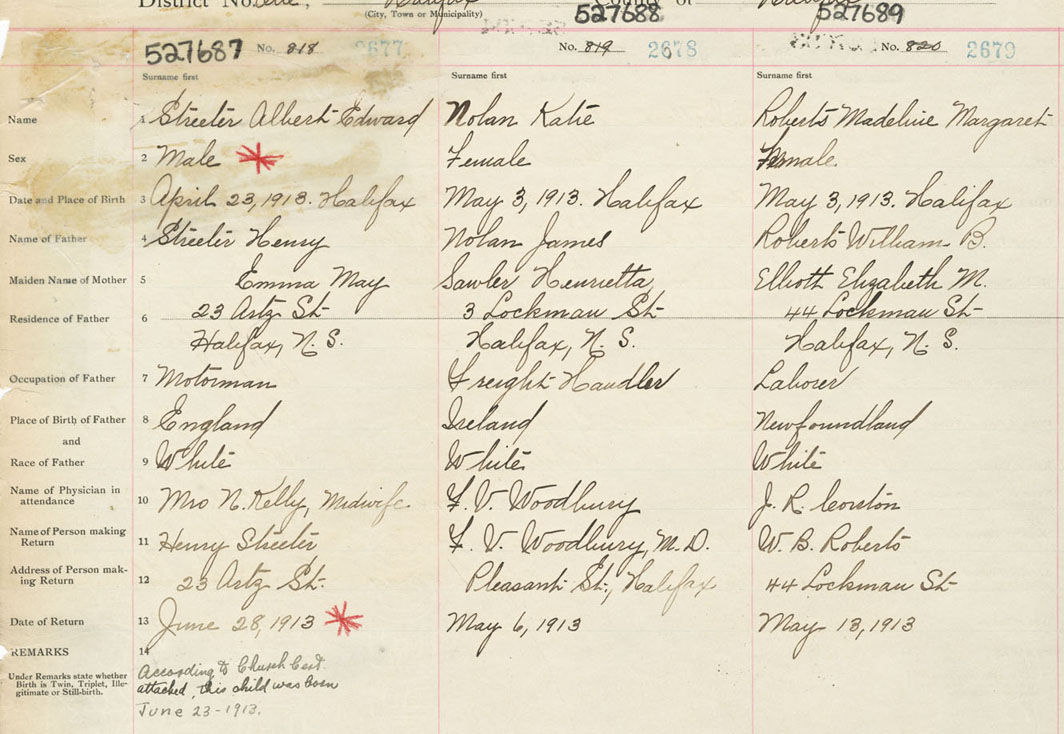 District No.
(City, Town or Municipality)
527688 527689
527687 No. 818 2677 No. 819 2678 No. 820 2679
Surname first Surname first Surname first
Name 1 Streeter Albert Edward Nolan Katie Roberts Madeline Margaret
Sex 2 Male Female Female
Date and Place of Birth 3 April 23, 1913. Halifax May 3, 1913. Halifax May 3, 1913. Halifax
Name of Father 4 Streeter Henry Nolan James Roberts William B.
Maiden Name of Mother 5 Emma May Sawler Henrietta Elliott Elizabeth M.
Residence of Father 6 23 Artz St 3 Lockman St 44 Lockman St
Halifax, N. S. Halifax, N. S. Halifax, N. S.
Occupation of Father 7 Motorman Freight Handler Laborer
Place of Birth of Father 8 England Ireland Newfoundland
and
Race of Father 9 White White White
Name of Physician in
attendance 10 Mrs N. Kelly, Midwife F. V. Woodbury J. R. Corston
Name of Person making
Return 11 Henry Streeter F. V. Woodbury, M. D. W. B. Roberts
Address of Person mak-
ing Return 12 23 Artz St. Pleasant St., Halifax 44 Lockman St
Date of Return 13 June 28, 1913 May 6, 1913 May 13, 1913
REMARKS 14
Under Remarks state whether
Birth is Twin, Triplet, Ille-
gitimate or Still-birth.
According to Church Cert.
attached, this child was born
June 23-1913.